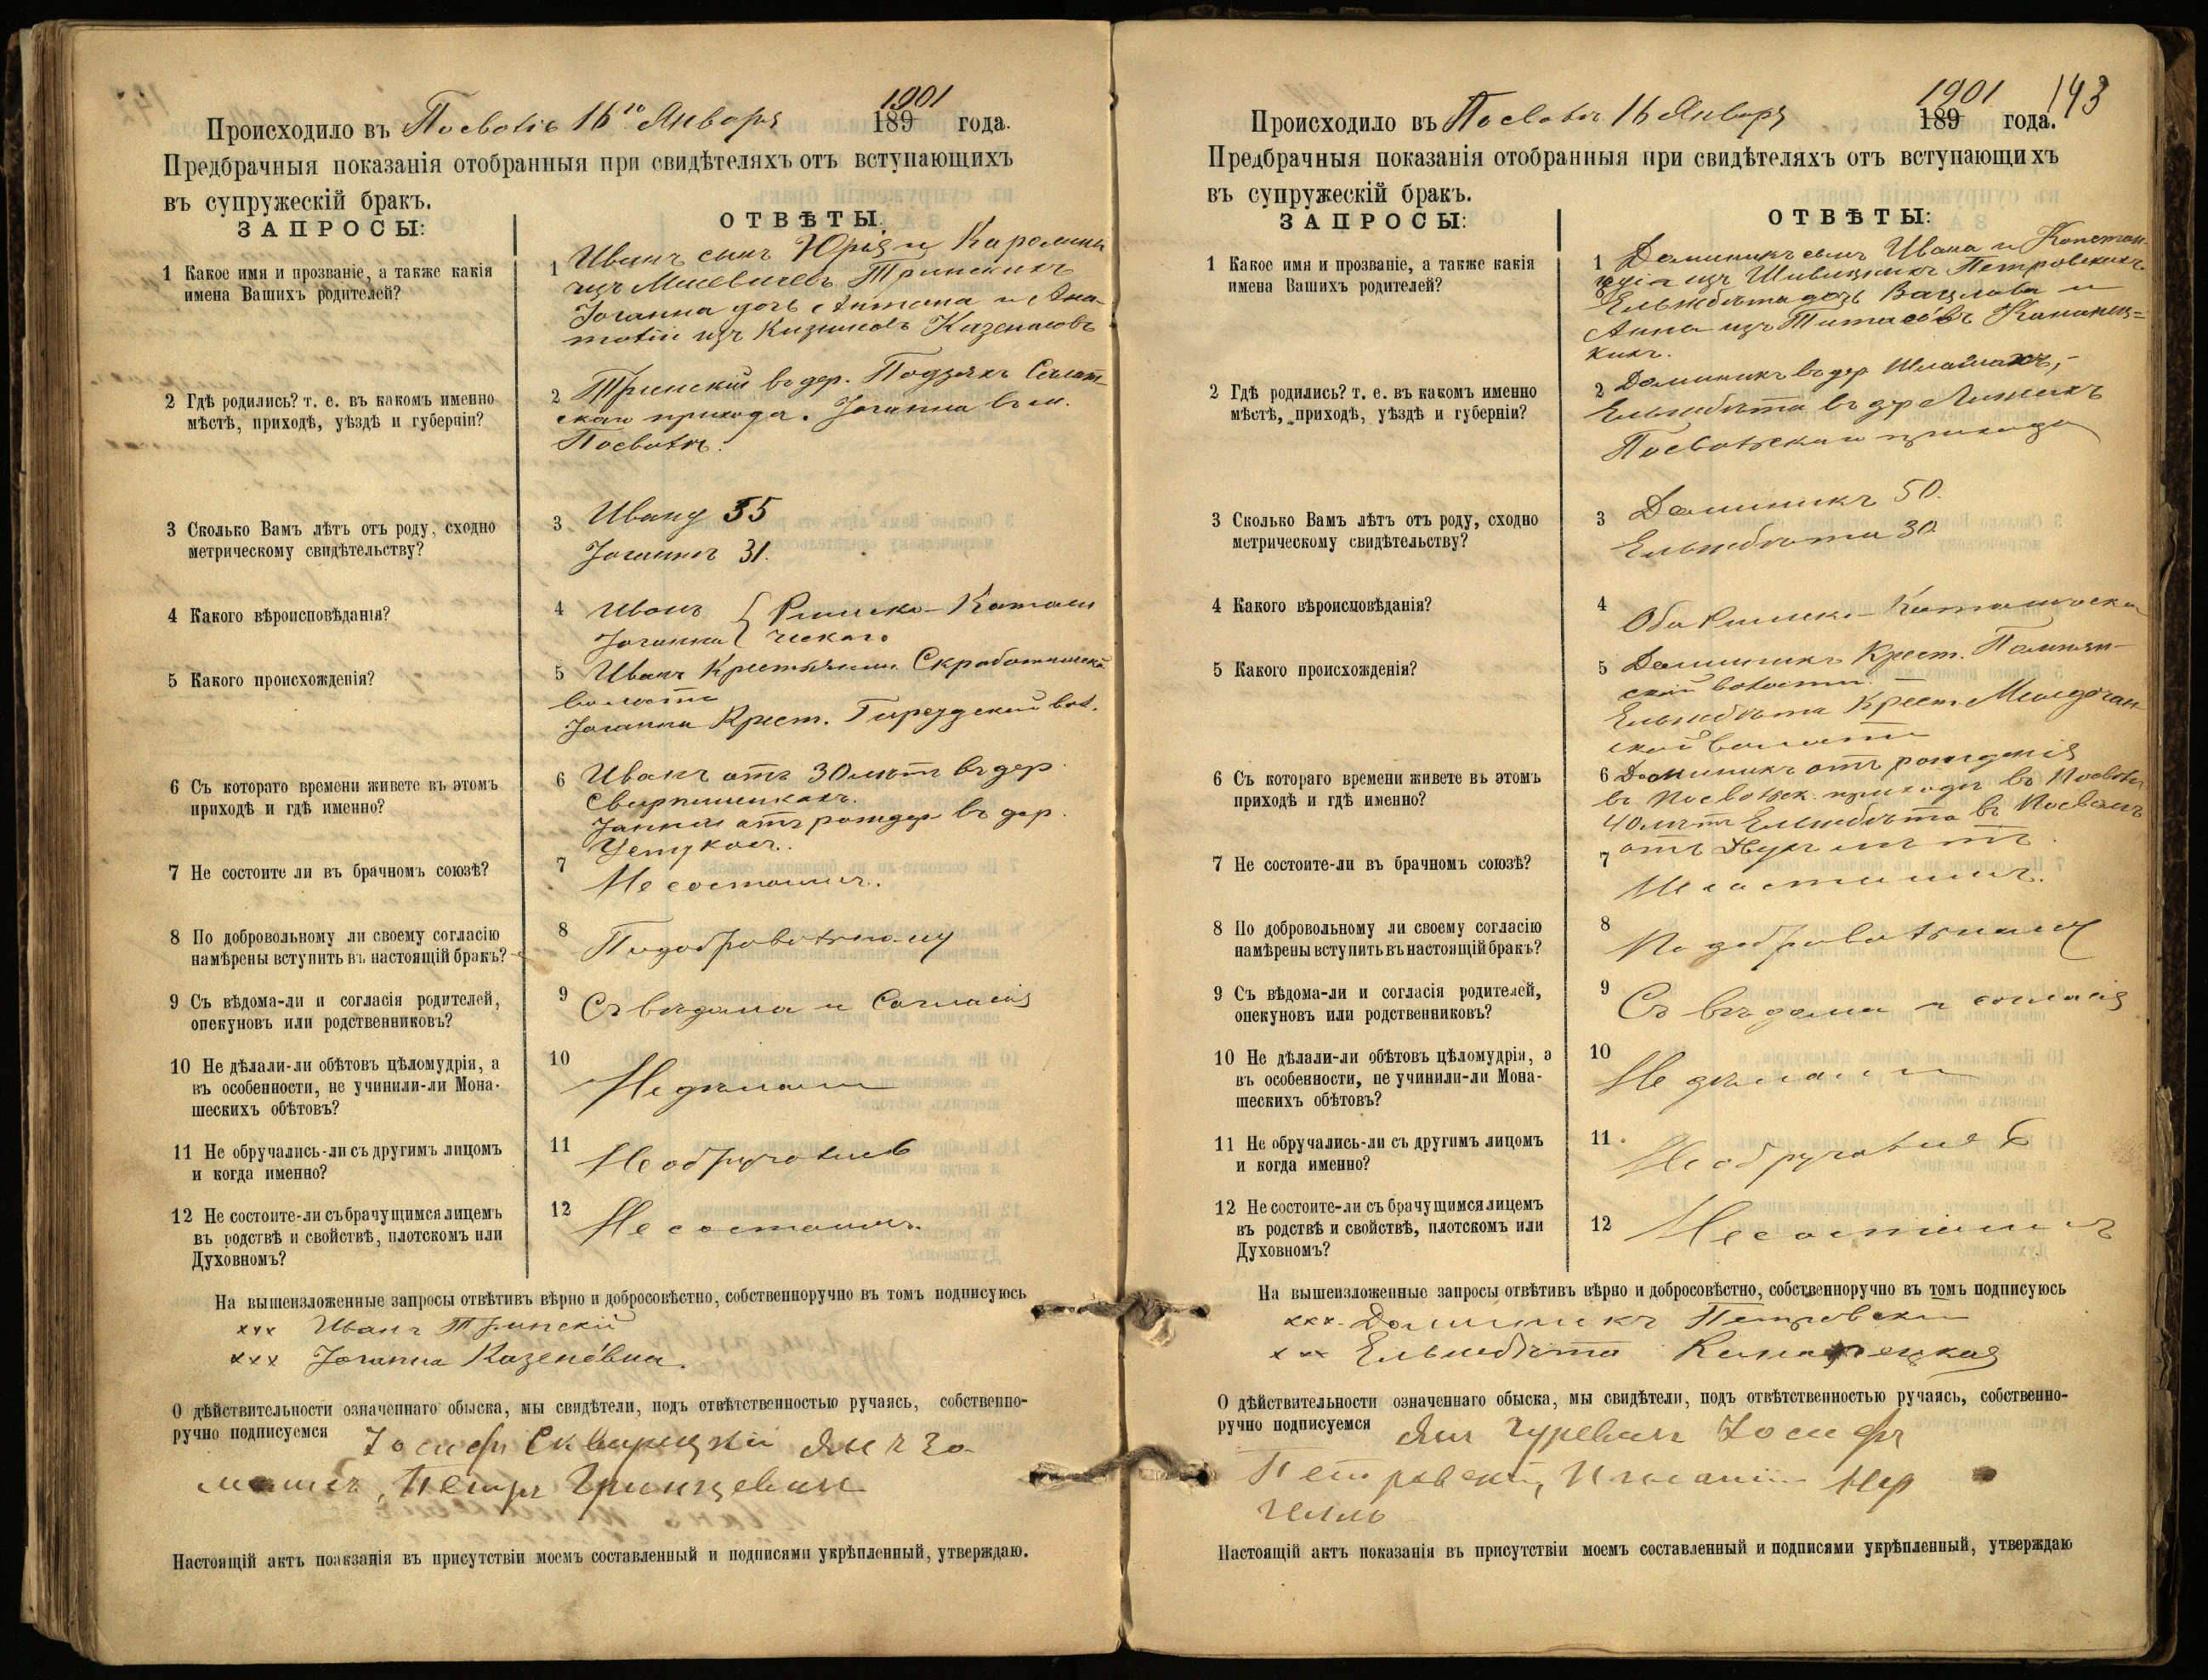 1901
Происходило въ Посволѣ 16го Января 189 года.
Предбрачныя показанія отобранныя при свидѣтеляхъ отъ вступающихъ
въ супружескій бракъ.
ЗАПРОСЫ:
ОТВѢТЫ:
1 Какое имя и прозваніе, а также какія
имена Вашихъ родителей?
1 Иванъ сынъ Юрія и Каролины
изъ Тринскихъ
Іоганна дочь Антона и Ана-
толіи изъ Казенасовъ
2 Гдѣ родились? т. е. въ какомъ именно
мѣстѣ, приходѣ, уѣздѣ и губерніи?
2 Тринскій въ дер. Салат-
скаго прихода. Іоганна въ м.
Посволѣ.
3 Сколько Вамъ лѣтъ отъ роду, сходно
метрическому свидѣтельству?
3 Ивану 35
Іоганнѣ 31.
4 Какого вѣроисповѣданія?
4 Иванъ Римско-Католи
Іоганна ческаго
5 Какого происхожденія?
5 Иванъ Крестьянинъ
волости
Іоганна Крест. вол.
6 Съ котораго времени живете въ этомъ
приходѣ и гдѣ именно?
6 Иванъ отъ 30 лѣтъ въ дер.
отъ рожден въ дер.
7 Не состоите ли въ брачномъ союзѣ?
7 Не состоимъ.
8 По добровольному ли своему согласію
намѣрены вступить въ настоящій бракъ?
8 По добровольному
9 Съ вѣдома-ли и согласія родителей,
опекуновъ или родственниковъ?
9 Съ вѣдома и Согласія
10 Не дѣлали-ли обѣтовъ цѣломудрія, а
въ особенности, не учинили-ли Мона-
шескихъ обѣтовъ?
10 Не дѣлали
11 Не обручались-ли съ другимъ лицомъ
и когда именно?
11 Не обручались
12 Не состоите-ли съ брачущимся лицемъ
въ родствѣ и свойствѣ, плотскомъ или
Духовномъ?
12 Не состоимъ.
На вышеизложенные запросы отвѣтивъ вѣрно и добросовѣстно, собственноручно въ томъ подписуюсь
xxx Иванъ Тринскій
xxx Іоганна Казенóвна.
О дѣйствительности означеннаго обыска, мы свидѣтели, подъ отвѣтственностью ручаясь, собственно-
ручно подписуемся Іосифъ
Петръ Гринцевич
Настоящій актъ поакзанія въ присутствіи моемъ составленный и подписями укрѣпленный, утверждаю.
1901 143
Происходило въ Посволѣ 16 Января 189 года.
Предбрачныя показанія отобранныя при свидѣтеляхъ отъ вступающихъ
въ супружескій бракъ.
ЗАПРОСЫ:
ОТВѢТЫ:
1 Какое имя и прозваніе, а также какія
имена Вашихъ родителей?
1 Доминикъ сынъ Ивана и Констан-
ціи изъ Петровскихъ
Ельжбѣта дочь Вацлава и
Анна изъ
кихъ.
2 Гдѣ родились? т. е. въ какомъ именно
мѣстѣ, приходѣ, уѣздѣ и губерніи?
2 Доминикъ въ дер
Ельжбѣта въ др
Посвольскаго прихода
3 Сколько Вамъ лѣтъ отъ роду, сходно
метрическому свидѣтельству?
3 Доминикъ 50.
Ельжбѣта 30
4 Какого вѣроисповѣданія?
4 Оба Римско-Католическа
5 Какого происхожденія?
5 Доминикъ Крест.
ской волости. —
Ельжбѣта Крест.
ской волости
6 Съ котораго времени живете въ этомъ
приходѣ и гдѣ именно?
6 Доминикъ отъ рожденія
въ Посвольск. приходѣ въ Посволѣ
40 лѣтъ Ельжбѣта въ Посволѣ
отъ двухъ лѣтъ.
7 Не состоите-ли въ брачномъ союзѣ?
7 Не состоимъ.
8 По добровольному ли своему согласію
намѣрены вступить въ настоящій бракъ?
8 По добровольному
9 Съ вѣдома-ли и согласія родителей,
опекуновъ или родственниковъ?
9 Съ вѣдома и согласія
10 Не дѣлали-ли обѣтовъ цѣломудрія, а
въ особенности, не учинили-ли Мона-
шескихъ обѣтовъ?
10 Не дѣлали
11 Не обручались-ли съ другимъ лицомъ
и когда именно?
11 Не обручались
12 Не состоите-ли съ брачущимся лицемъ
въ родствѣ и свойствѣ, плотскомъ или
Духовномъ?
12 Не состоимъ
На вышеизложенные запросы отвѣтивъ вѣрно и добросовѣстно, собственноручно въ томъ подписуюсь
xxx. Доминикъ Петровски
xxx Ельжбѣта
О дѣйствительности означеннаго обыска, мы свидѣтели, подъ отвѣтственностью ручаясь, собственно-
ручно подписуемся Ян Гуревич Іосифъ
Петровскій,
Настоящій актъ показанія въ присутствіи моемъ составленный и подписями укрѣпленный, утверждаю